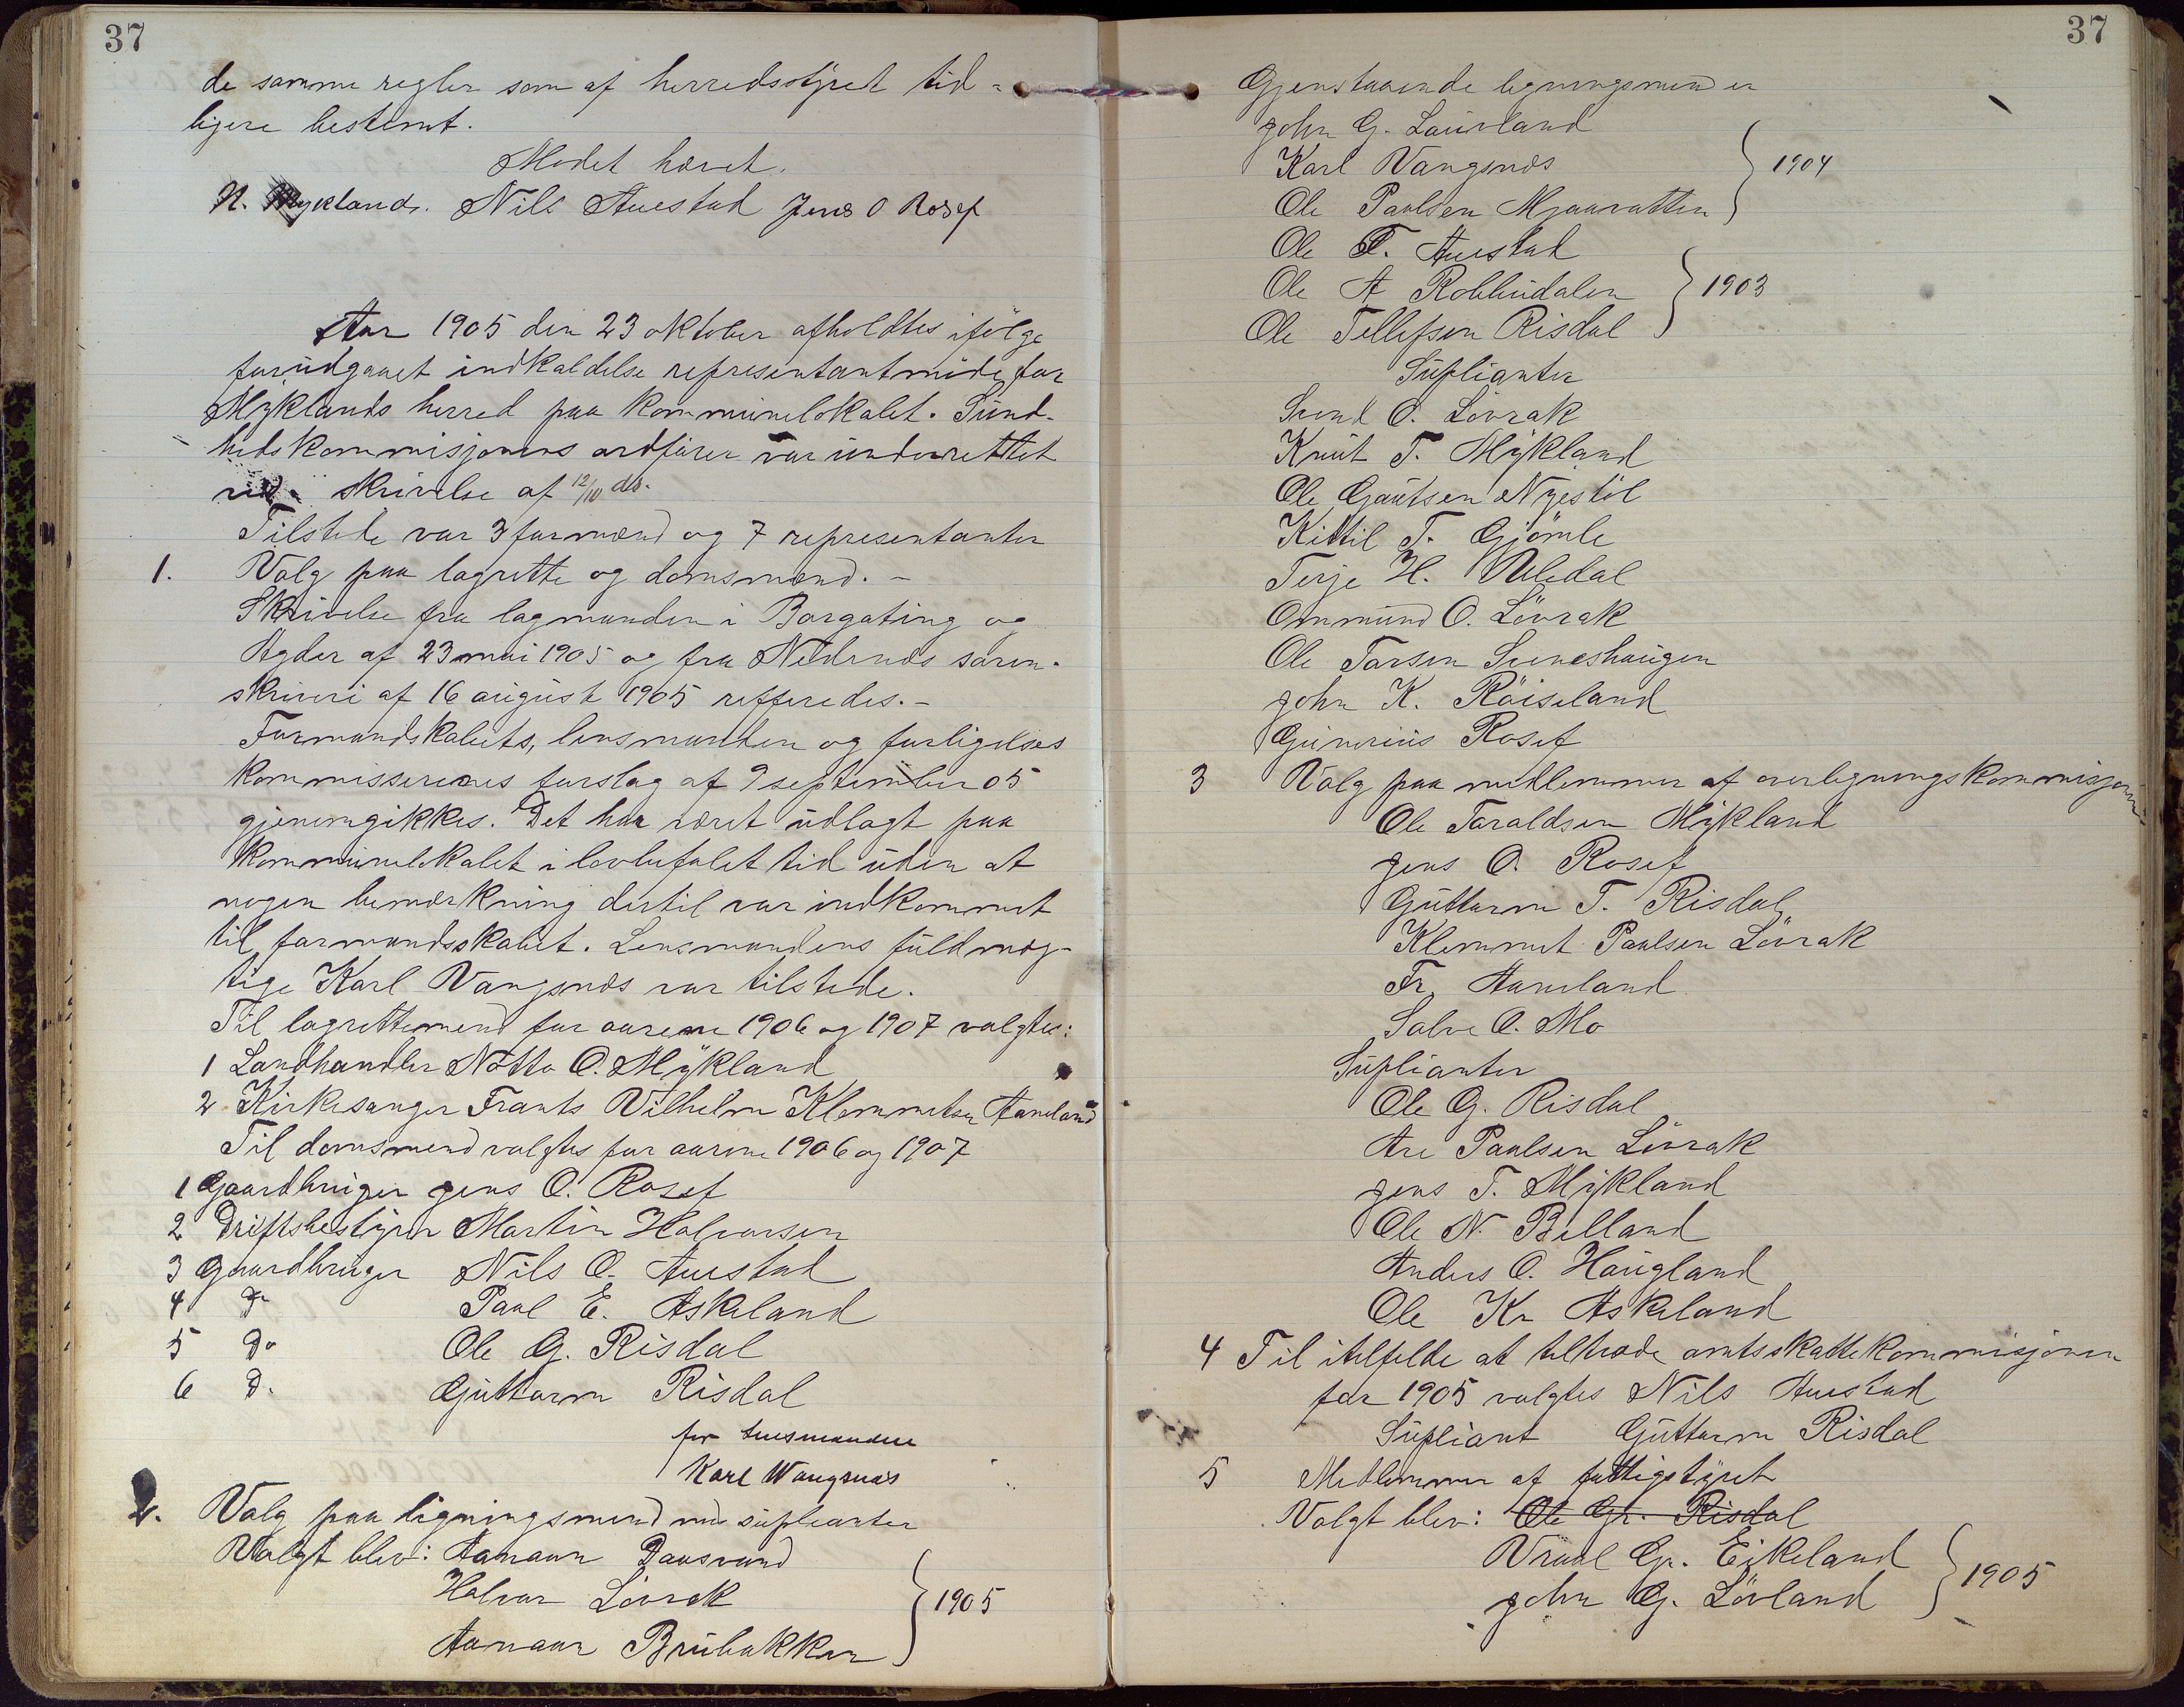 37
de samme regler som af herredsstyret tid-
ligere bestemt.
Mødet hævet.
N. Mykland. Nils Auestad Jens O Rosef
Aar 1905 den 23 oktober afholdtes ifölge
forudgaaet indkaldelse representantmöde for
Myklands herred paa kommunelokalet. Sund-
hedskommisjonens ordförer var underrettet
ved skrivelse af 12/10 ds.
Tilstede var 3 formænd og 7 representanter
1. Valg paa lagrette og domsmænd. -
Skrivelse fra lagmanden i Borgating og
Agder af 23 mai 1905 og fra Nedenæs soren-
skriveri af 16 august 1905 refferedes. -
Formandskabets, lensmanden og forligelses
kommisserernes forslag af 9 september 05
gjenemgikkes. Det har været udlagt paa
kommunelokalet i lovbefalet tid uden at
nogen bemærkning dertil var indkommet
til formandsskabet. Lensmandens fuldmæg-
tige Karl Vangsnæs var tilstede.
Til lagrettemend for aarene 1906 og 1907 valgtes:
1 Landhandler Notto O. Mykland
2 Kirkesanger Frants Vilhelm Klemmetsen Aaneland
Til domsmend valgtes for aarene 1906 og 1907
1 Gaardbruger Jens O. Rosef
2 Driftsbestyrer Martin Halvorsen
3 Gaardbruger Nils O. Auestad
4 Do Paul E. Askeland
5 Do Ole G. Risdal
6 D. Guttorm Risdal
for lensmanden
Karl Wangsnæs
2. Valg paa ligningsmend med suplianter
Valgt blev: Aanaun Daasvand
Halvor Lövrak
Aanaun Brubakken
1905
37
Gjenstaaende ligningsmend er
John G. Laurland
Karl Vangsnæs
Ole Paulsen Mjaavatten
1904
Ole T. Auestad
Ole A Robbudalen
Ole Tellefsen Risdal
1903
Suplianter
Svend O. Lövrak
Knut T. Mykland
Ole Gautsen Nyestöl
Kittil T. Gjömle
Terje H. Uledal
Ommund O. Lövrak
Ole Tarsen Sveneshaugen
John K. Röiseland
Gunerius Rosef
3 Valg paa medlemmer af overligningskommisjonen
Ole Taraldsen Mykland
Jens O. Rosef
Guttorm T. Risdal
Klemmet Paulsen Lövrak
Fr. Aaneland
Salve O. Mo
Suplianter
Ole G. Risdal
Are Paulsen Lövrak
Jens T. Mykland
Ole N. Belland
Anders O. Haugland
Ole Kr Askeland
4 Til itilfelde at tiltræde amtsskattekommisjonen
for 1905 valgtes Nils Auestad
Supliant Guttorm Risdal
5 Medlemmer af fattigstyret
Valgt blev: Ole Gr. Risdal
Vraal Gr. Eikeland
John G. Lövland
1905